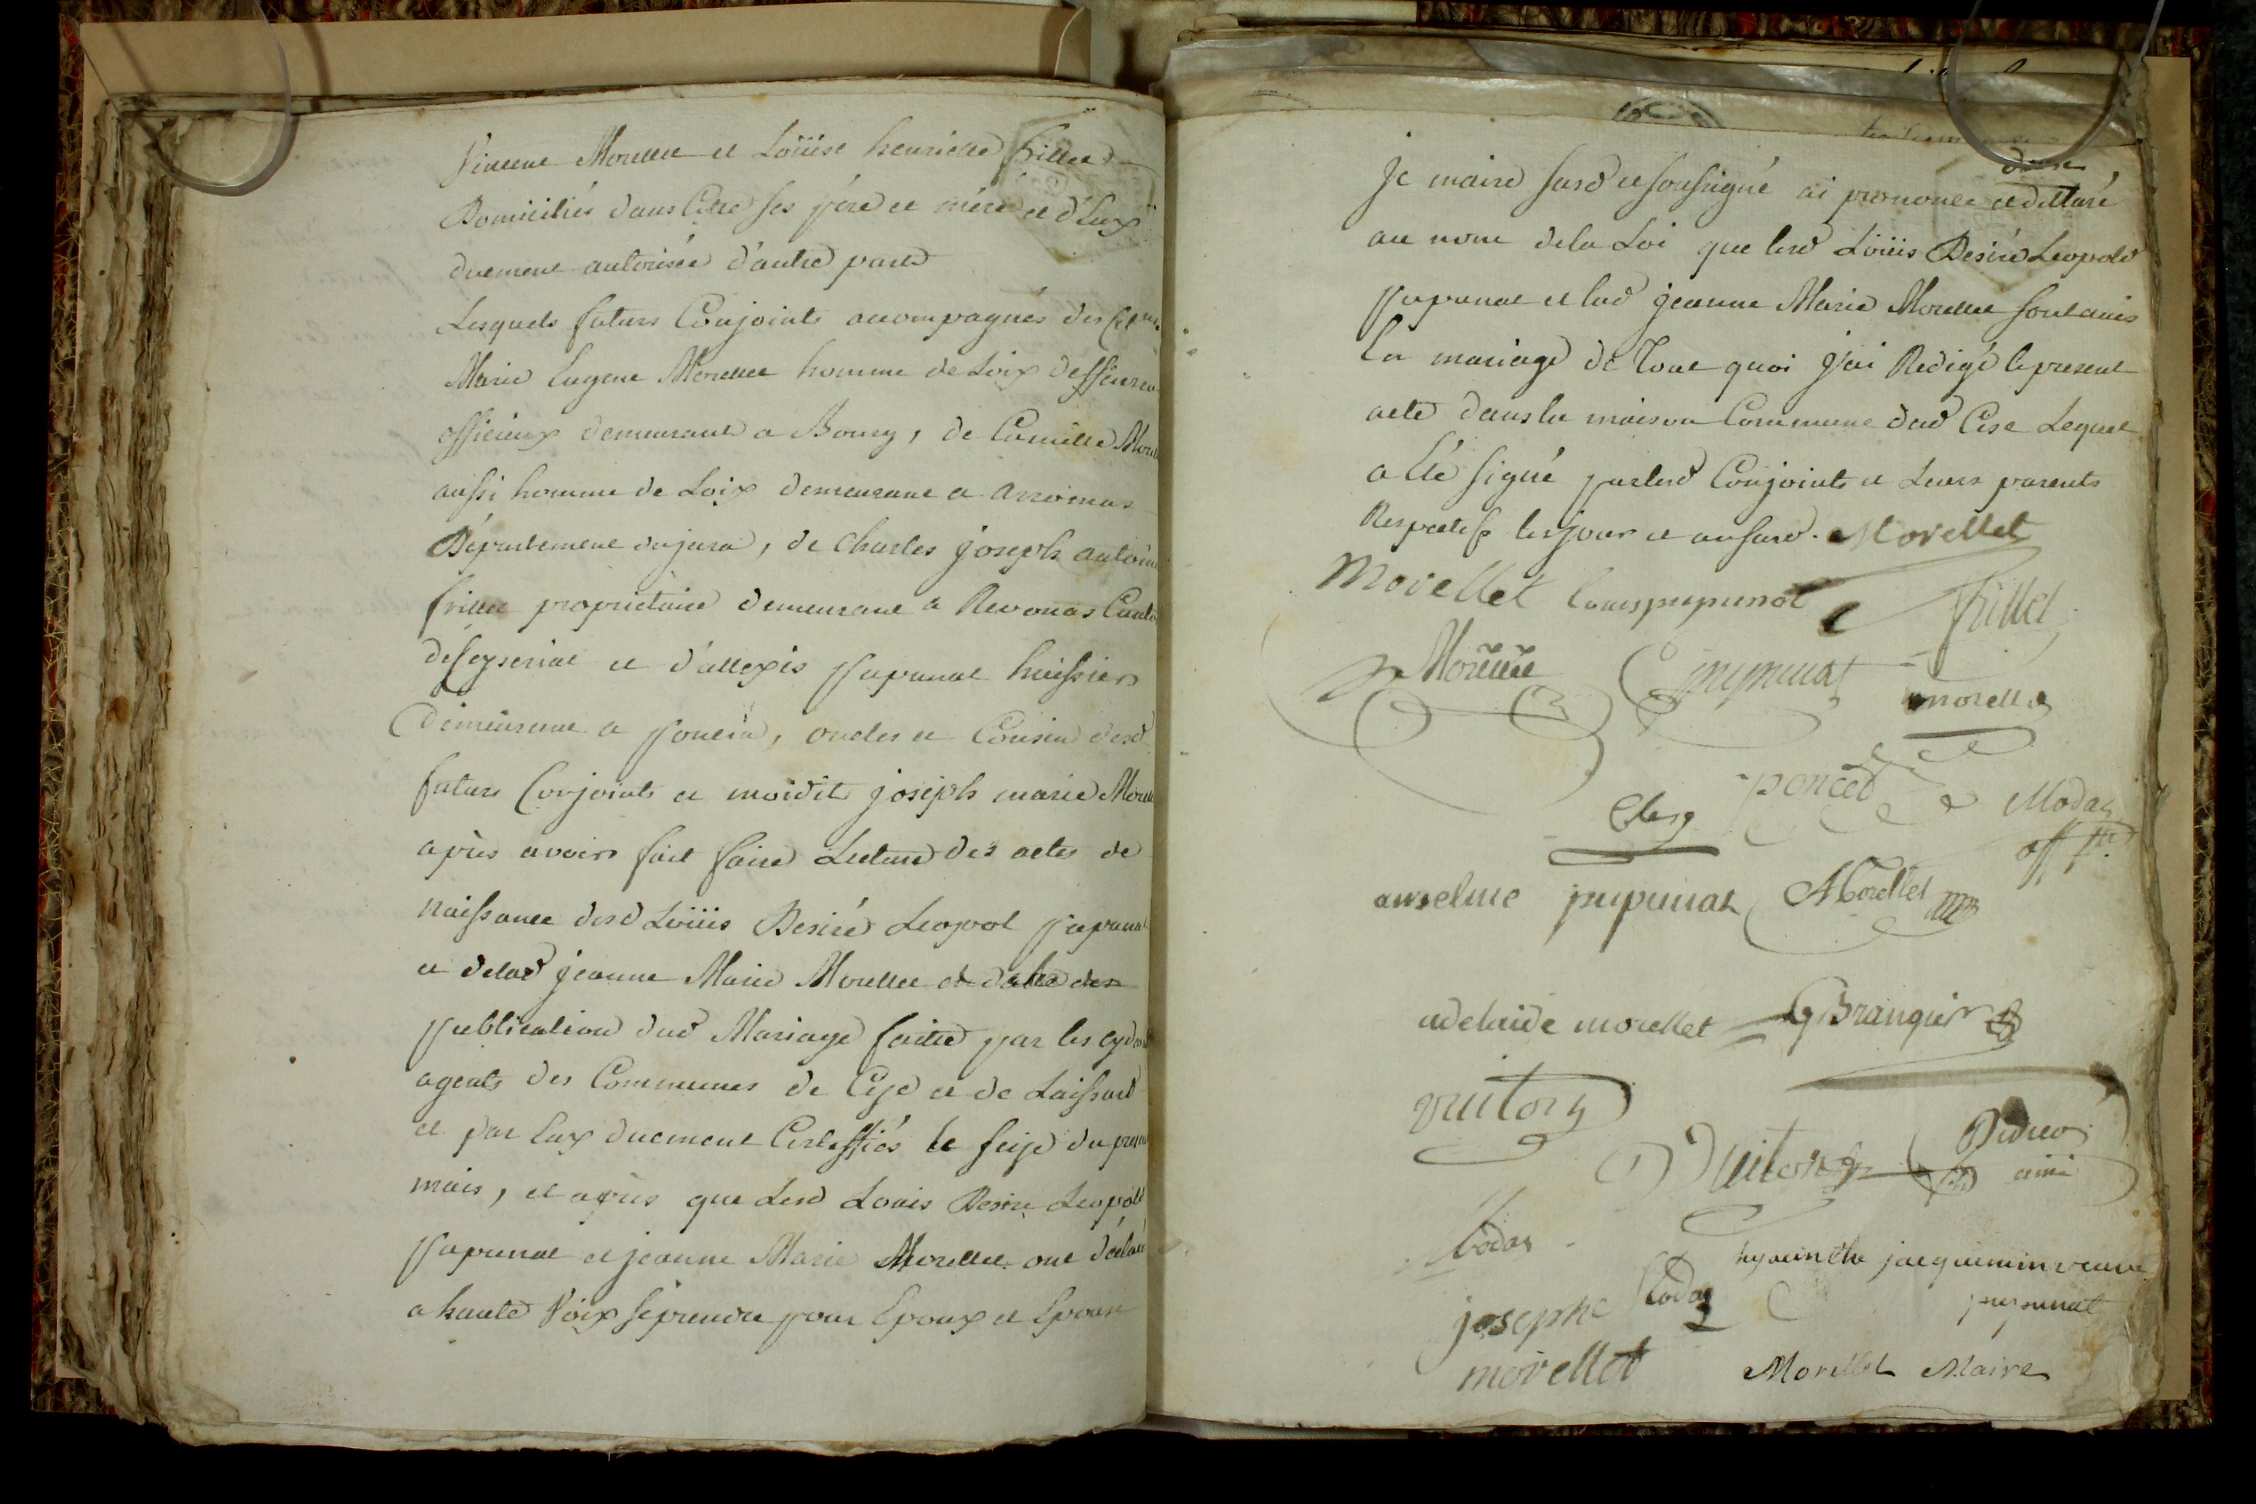 Vincent Morellet et Loüise henriette frillet
Domiciliés dans Cize ses pére et mére et d'Eux
duement autorisée d'autre part
Lesquels futurs Conjoints accompagnés des Citens
Marie Eugene Morellet homme de Loix deffenseur
officieux demeurant a Bourg, de Camille Morel
aussi homme de Loix demeurant a arromas
Département du jura, de Charles joseph antoine
frillet proprietaire demeurant a Revonas Canton
de Ceyseriat et d'allexis pupunat huissier
demeurant a poncin, oncles et Cousin desd
futurs Conjoints et moidit joseph marie Morel
après avoir fait faire Lecture des actes de
naissance dud Loüis Desiré Leopol pupunat
et delad jeanne Marie Morellet et de des
publication dud Mariage faitte par les
agents des Communes de Cize et de Laissard
et par Eux duement Certiffiés le seize du present
mois, et après que Lesd Louis Desiré Leopold
pupunat et jeanne Marie Morellet ont déclaré
a haute Voix se prendre pour Epoux et Epouse
Je maire susd et soussigné ai prononcé et declaré
au nom de la Loi que lesd Loüis Desiré Leopold
pupunat et lad jeanne Marie Morellet sont unis
En mariage de Tout quoi j'ai Redigé le present
acte dans la maison Commune dud Cise Lequel
a Eté signé par lesd Conjoints et Leurs parents
Respectifs les jour et an susd. Morellet
Morellet Louis pupunat frillet
Morellet pupunat morellet
poncet
Clerg Modas
anselme pupunat AMorellet
adelaide morellet Branquier
vuitton
Vuitton Didier
ainé
Bodas
hyacinthe jacquemin veuve
josephe Bodas pupunat
morellet Morellet Maire